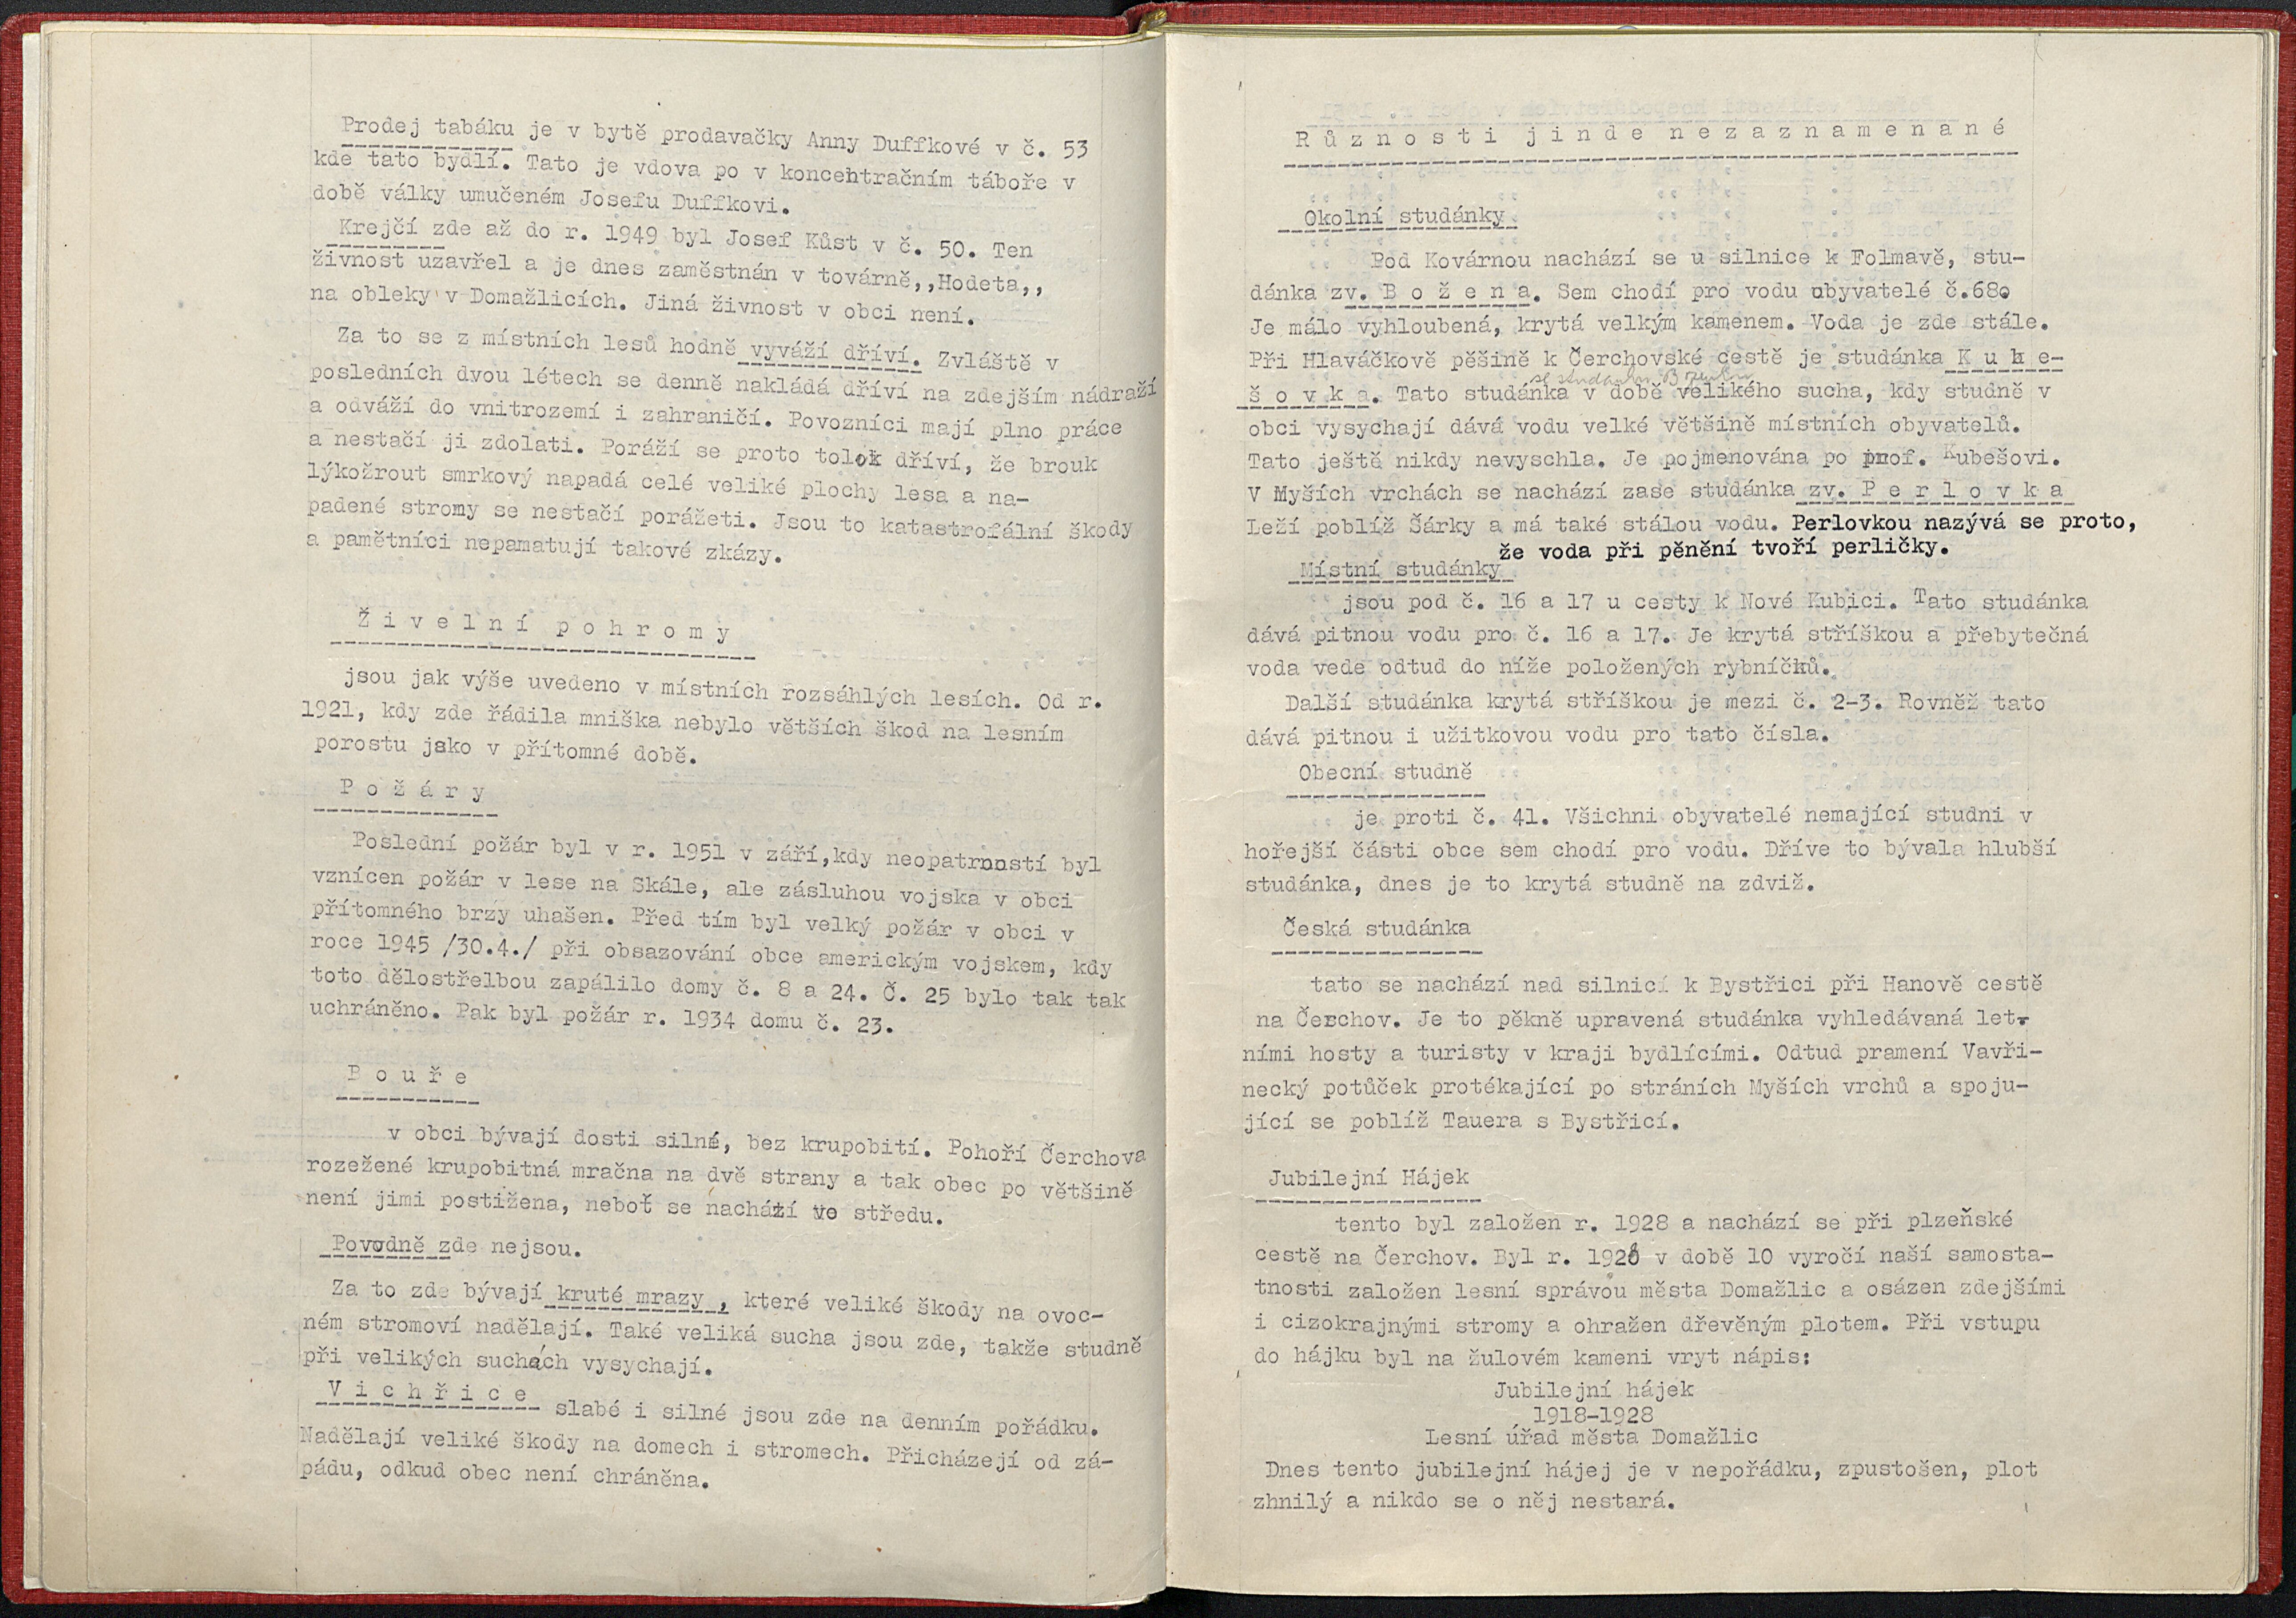 Prodej tabáku je v bytě prodavačky Anny Duffkové v č. 53
kde tato bydlí. Tato je vdova po v koncentračním táboře v
době války umučeném Josefu Duffkovi.
Krejčí zde až do r. 1949 byl Josef Kůst v č. 50. Ten
živnost uzavřel a je dnes zaměstnán v továrně,,Hodeta,,
na obleky v Domažlicích. Jiná živnost v obci není.
Za to se z místních lesů hodně vyváží dříví. Zvláště v
posledních dvou létech se denně nakládá dříví na zdejším nádraží
a odváží do vnitrozemí i zahraničí. Povozníci mají plno práce
a nestačí ji zdolati. Poráží se proto tolik dříví, že brouk
lýkožrout smrkový napadá celé veliké plochy lesa a na-
padené stromy se nestačí porážeti. Jsou to katastrofální škody
a pamětníci nepamatují takové zkázy.
Živelní pohromy
jsou jak výše uvedeno v místních rozsáhlých lesích. Od r.
1921, kdy zde řádila mniška nebylo větších škod na lesním
porostu jako v přítomné době.
Požáry
Poslední požár byl v r. 1951 v září,kdy neopatrností byl
vznícen požár v lese na Skále, ale zásluhou vojska v obci
přítomného brzy uhašen. Před tím byl velký požár v obci v
roce 1945 /30.4./ při obsazování obce americkým vojskem, kdy
toto dělostřelbou zapálilo domy č. 8 a 24. Č. 25 bylo tak tak
uchráněno. Pak byl požár r. 1934 domu č. 23.
Bouře
v obci bývají dosti silné, bez krupobití. Pohoří Čerchova
rozežené krupobitná mračna na dvě strany a tak obec po většině
není jimi postižena, neboť se nachází ve středu.
Povodně zde nejsou.
Za to zde bývají kruté mrazy , které veliké škody na ovoc-
ném stromoví nadělají. Také veliká sucha jsou zde, takže studně
při velikých suchách vysychají.
Vichřice slabé i silné jsou zde na denním pořádku.
Nadělají veliké škody na domech i stromech. Přicházejí od zá-
pádu, odkud obec není chráněna.
Různosti jinde nezaznamenané
Okolní studánky
Pod Kovárnou nachází se u silnice k Folmavě, stu-
dánka zv. Božena. Sem chodí pro vodu obyvatelé č.68.
Je málo vyhloubená, krytá velkým kamenem. Voda je zde stále.
Při Hlaváčkově pěšině k Čerchovské cestě je studánka Kube-
šovka. Tato studánka v době velikého sucha, kdy studně v
obci vysychají dává vodu velké většině místních obyvatelů.
Tato ještě nikdy nevyschla. Je pojmenována po prof. Kubešovi.
V Myších vrchách se nachází zase studánka zv. Perlovka
Leží poblíž Šárky a má také stálou vodu. Perlovkou nazývá se proto,
že voda při pěnění tvoří perličky.
Místní studánky
jsou pod č. 16 a 17 u cesty k Nové Kubici. Tato studánka
dává pitnou vodu pro č. 16 a 17. Je krytá stříškou a přebytečná
voda vede odtud do níže položených rybníčků.
Další studánka krytá stříškou je mezi č. 2-3. Rovněž tato
dává pitnou i užitkovou vodu pro tato čísla.
Obecní studně
je proti č. 41. Všichni obyvatelé nemající studni v
hořejší části obce sem chodí pro vodu. Dříve to bývala hlubší
studánka, dnes je to krytá studně na zdviž.
Česká studánka
tato se nachází nad silnicí k Bystřici při Hanově cestě
na Čerchov. Je to pěkně upravená studánka vyhledávaná let-
ními hosty a turisty v kraji bydlícími. Odtud pramení Vavři-
necký potůček protékající po stráních Myších vrchů a spoju-
jící se poblíž Tauera s Bystřicí.
Jubilejní Hájek
tento byl založen r. 1928 a nachází se při plzeňské
cestě na Čerchov. Byl r. 1928 v době 10 vyročí naší samosta-
tnosti založen lesní správou města Domažlic a osázen zdejšími
i cizokrajnými stromy a ohražen dřevěným plotem. Při vstupu
do hájku byl na žulovém kameni vryt nápis:
Jubilejní hájek
1918-1928
Lesní úřad města Domažlic
Dnes tento jubilejní hájej je v nepořádku, zpustošen, plot
zhnilý a nikdo se o něj nestará.